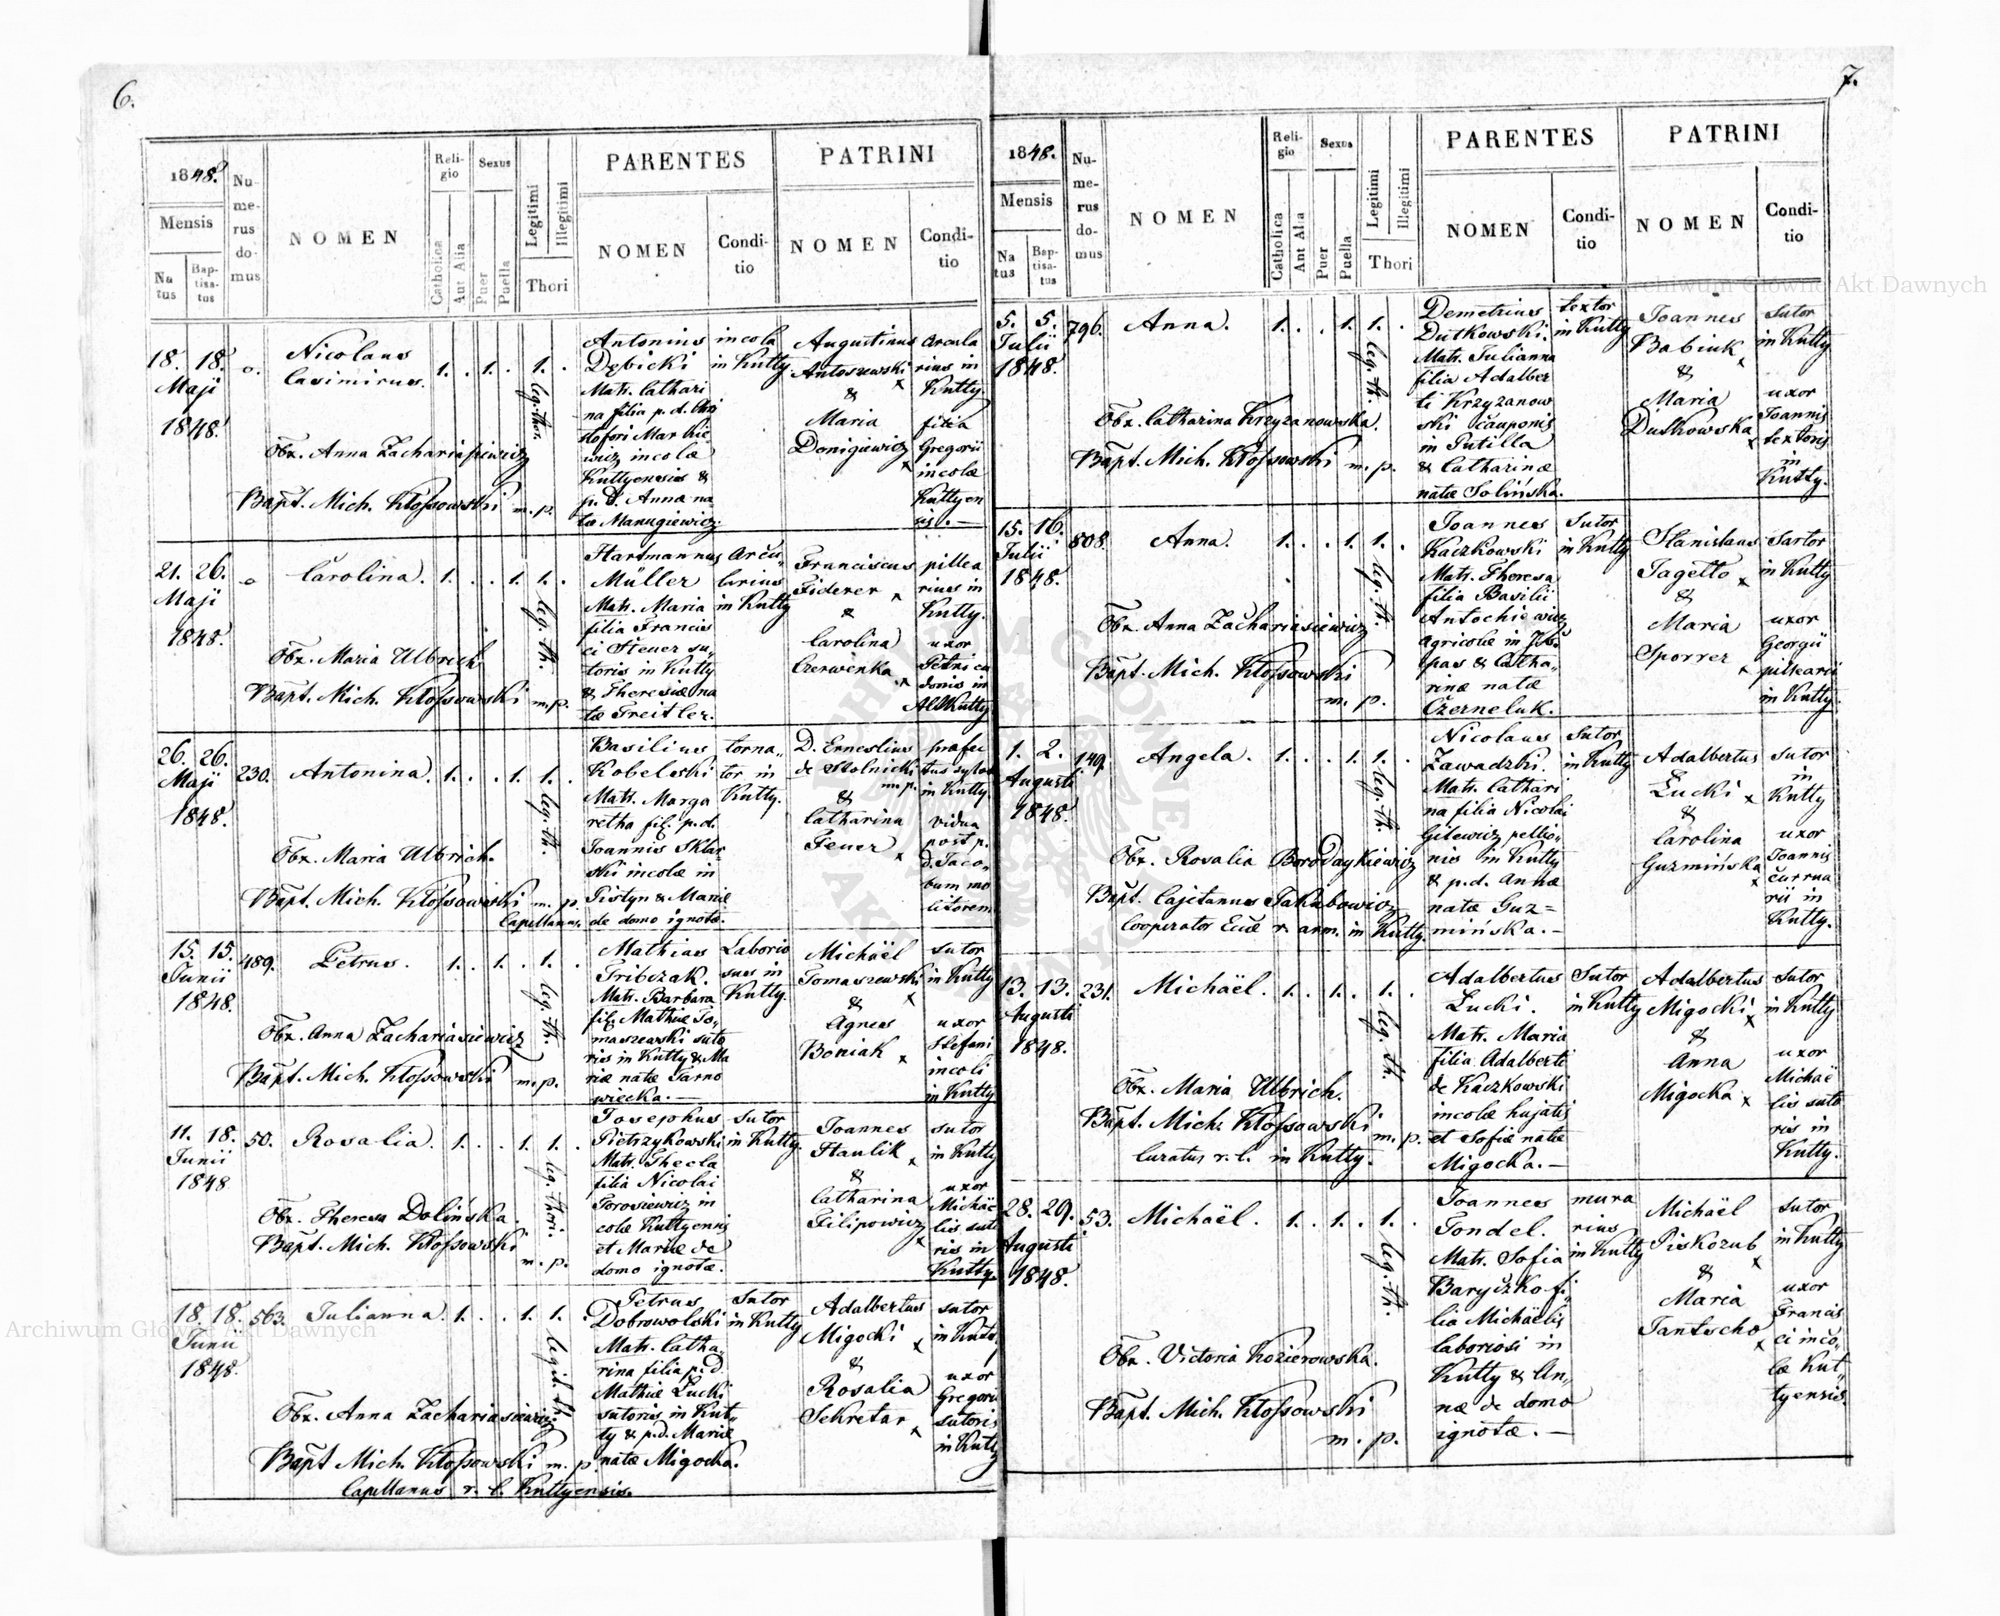 6.
1848.
Mensis
Na
tus
Bap-
tisa-
tus
Nu-
me-
rus
do-
mus
NOMEN
Reli-
gio
Catholica
Aut Alia
Sexus
Puer
Puella
Legitimi
Illegitimi
Thori
PARENTES
NOMEN
Condi-
tio
PATRINI
NOMEN
Condi-
tio
18. 18.
Maji
1848.
o.
Nicolaus
Casimirus.
1. . 1. . 1. .
leg. thori
Obx. Anna Zachariasiewicz
Bapt. Mich. Kłossowski m. p.
Antonius
Dębicki
Matr. Cathari
na filia p. d. Chri
stofori Markie
wicz incolæ
Kuttyensis &
p. d. Annæ na
tæ Manugiewicz.
incola
in Kutty
Augustinus
Antoszewski x
&
Maria
Donigiewicz x
Arcula
rius in
Kutty
filia
Gregorii
incolæ
Kuttyen
sis. —
21. 26.
Maji
1848.
o
Carolina.
1. . . 1. 1. .
leg. th.
Obx. Maria Ulbrich
Bapt. Mich. Kłossowski m. p.
Hartmannus
Müller
Matr. Maria
filia Francis
ci Steuer su„
toris in Kutty
& Theresiæ na
tæ Treitler.
Arcu„
larius
in Kutty
Franciscus
Fiderer x
&
Carolina
Czerwenka x
pillea
rius in
Kutty.
uxor
Petri cu
donis in
Alt Kutty
26. 26.
Maji
1848.
230.
Antonina.
1. . . 1. 1. .
leg. th.
Obx. Maria Ulbrich.
Bapt. Mich. Kłossowski m. p.
Capellanus.
Basilius
Kobelski
Matr. Marga
retha fil. p. d.
Joannis Sklar
ski incolæ in
Pistyn & Mariæ
de domo ignotæ.
torna„
tor in
Kutty.
D. Ernestius
de Stolnicki
m. p.
&
Catharina
Feuer x
præfec
tus sylva
in Kutty.
vidua
post p.
d. Jaco„
bum mo
litorem
15. 15.
Junii
1848.
489.
Petrus.
1. . 1. . 1. .
leg. th.
Obx. Anna Zachariasiewicz
Bapt. Mich. Kłossowski m. p.
Mathias
Tribczak.
Matr. Barbara
fil. Mathiæ To„
maszewski suto
ris in Kutty & Ma
riæ natæ Tarno
wiecka. —
Laborio
sus in
Kutty.
Michaël
Tomaszewski x
&
Agnes
Boniak x
sutor
in Kutty
uxor
Stefani
incoli
in Kutty
11. 18.
Junii
1848
50.
Rosalia.
1. . . 1. 1. .
leg. thori.
Obx. Theresa Dolińska.
Bapt. Mich. Kłossowski
m. p.
Josephus
Pietrzykowski
Matr. Thecla
filia Nicolai
Torosiewicz in
colæ Kuttyensis
et Mariæ de
domo ignotæ.
Sutor
in Kutty.
Joannes
Hawlik x
&
Catharina
Filipowicz x
sutor
in Kutty
uxor
Michaë
lis suto
ris in
Kutty.
18. 18.
Junii
1848.
563.
Julianna.
1. . . 1. 1. .
legit. th.
Obx. Anna Zachariasiewicz
Bapt Mich. Kłossowski m. p.
Capellanus r. l. Kuttyensis.
Petrus
Dobrowolski
Matr. Catha„
rina filia p. d.
Mathiæ Łucki
sutoris in Kut„
ty & p. d. Mariæ
natæ Migocka.
Sutor
in Kutty
Adalbertus
Migocki x
&
Rosalia
Sekretar x
sutor
in Kutty
uxor
Gregorii
sutoris
in Kutty
7.
1848.
Mensis
Na
tus
Bap-
tisa-
tus
Nu-
me-
rus
do-
mus
NOMEN
Reli-
gio
Catholica
Aut Alia
Sexus
Puer
Puella
Legitimi
Illegitimi
Thori
PARENTES
NOMEN
Condi-
tio
PATRINI
NOMEN
Condi-
tio
5. 5.
Julii
1848.
796.
Anna.
1. . . 1. 1. .
leg. th.
Obx. Catharina Krzyzanowska.
Bapt. Mich. Kłossowski m. p.
Demetrius
Dutkowski.
Matr. Julianna
filia Adalber
ti Krzyzanow
ski cauponis
in Putilla
& Catharinæ
natæ Solińska.
textor
in Kutty
Joannes
Babiuk x
&
Maria
Dutkowska x
Sutor
in Kutty
uxor
Joannis
textoris
in
Kutty.
15. 16.
Julii
1848.
808.
Anna.
1. . . 1. 1. .
leg. th.
Obx. Anna Zachariasiewicz
Bapt. Mich. Kłossowski
m. p.
Joannes
Kaczkowski
Matr. Theresa
filia Basilii
Antochiewicz
agricolæ in
pas & Catha„
rinæ natæ
Czerneluk.
Sutor
in Kutty
Stanislaus
Jagetto x
&
Maria
Sporrer x
Sartor
in Kutty
uxor
Georgii
pillearii
in Kutty.
1. 2.
Augusti
1848.
149.
Angela.
1. . . 1. 1. .
leg. th.
Obx. Rosalia Borodaykiewicz
Bapt. Cajetanus Jakubowicz
Cooperator Eccæ r. arm. in Kutty.
Nicolaus
Zawadzki.
Matr. Cathari
na filia Nicolai
Gilewicz pellio„
nis in Kutty
& p. d. Annæ
natæ Guz=
mińska. —
Sutor
in Kutty
Adalbertus
Łucki x
&
Carolina
Guzmińska x
Sutor
in
Kutty
uxor
Joannis
currua
rii in
Kutty.
13. 13.
Augusti
1848.
231.
Michaël.
1. . 1. . 1. .
leg. th.
Obx. Maria Ulbrich.
Bapt. Mich. Kłossowski m. p.
Curatus r. l. in Kutty.
Adalbertus
Łucki.
Matr. Maria
filia Adalberti
de Kaczkowski
incolæ hujatis
et Sofiæ natæ
Migocka. —
Sutor
in Kutty
Adalbertus
Migocki x
&
Anna
Migocka x
Sutor
in Kutty
uxor
Michaë
lis suto
ris in
Kutty.
28. 29.
Augusti
1848.
53.
Michaël.
1. . 1. . 1. .
leg. th.
Obx. Victoria Kozierowska.
Bapt. Mich. Kłossowski
m. p.
Joannes
Tondel.
Matr. Sofia
Baryczko fi„
lia Michaëlis
laboriosi in
Kutty & An„
næ de domo
ignotæ. —
mura
rius
in Kutty
Michaël
Piskozub x
&
Maria
Jantscho x
sutor
in Kutty
uxor
Francis
ci inco„
læ Kut„
tyensis.
Archiwum Główne Akt Dawnych
Archiwum Główne Akt Dawnych